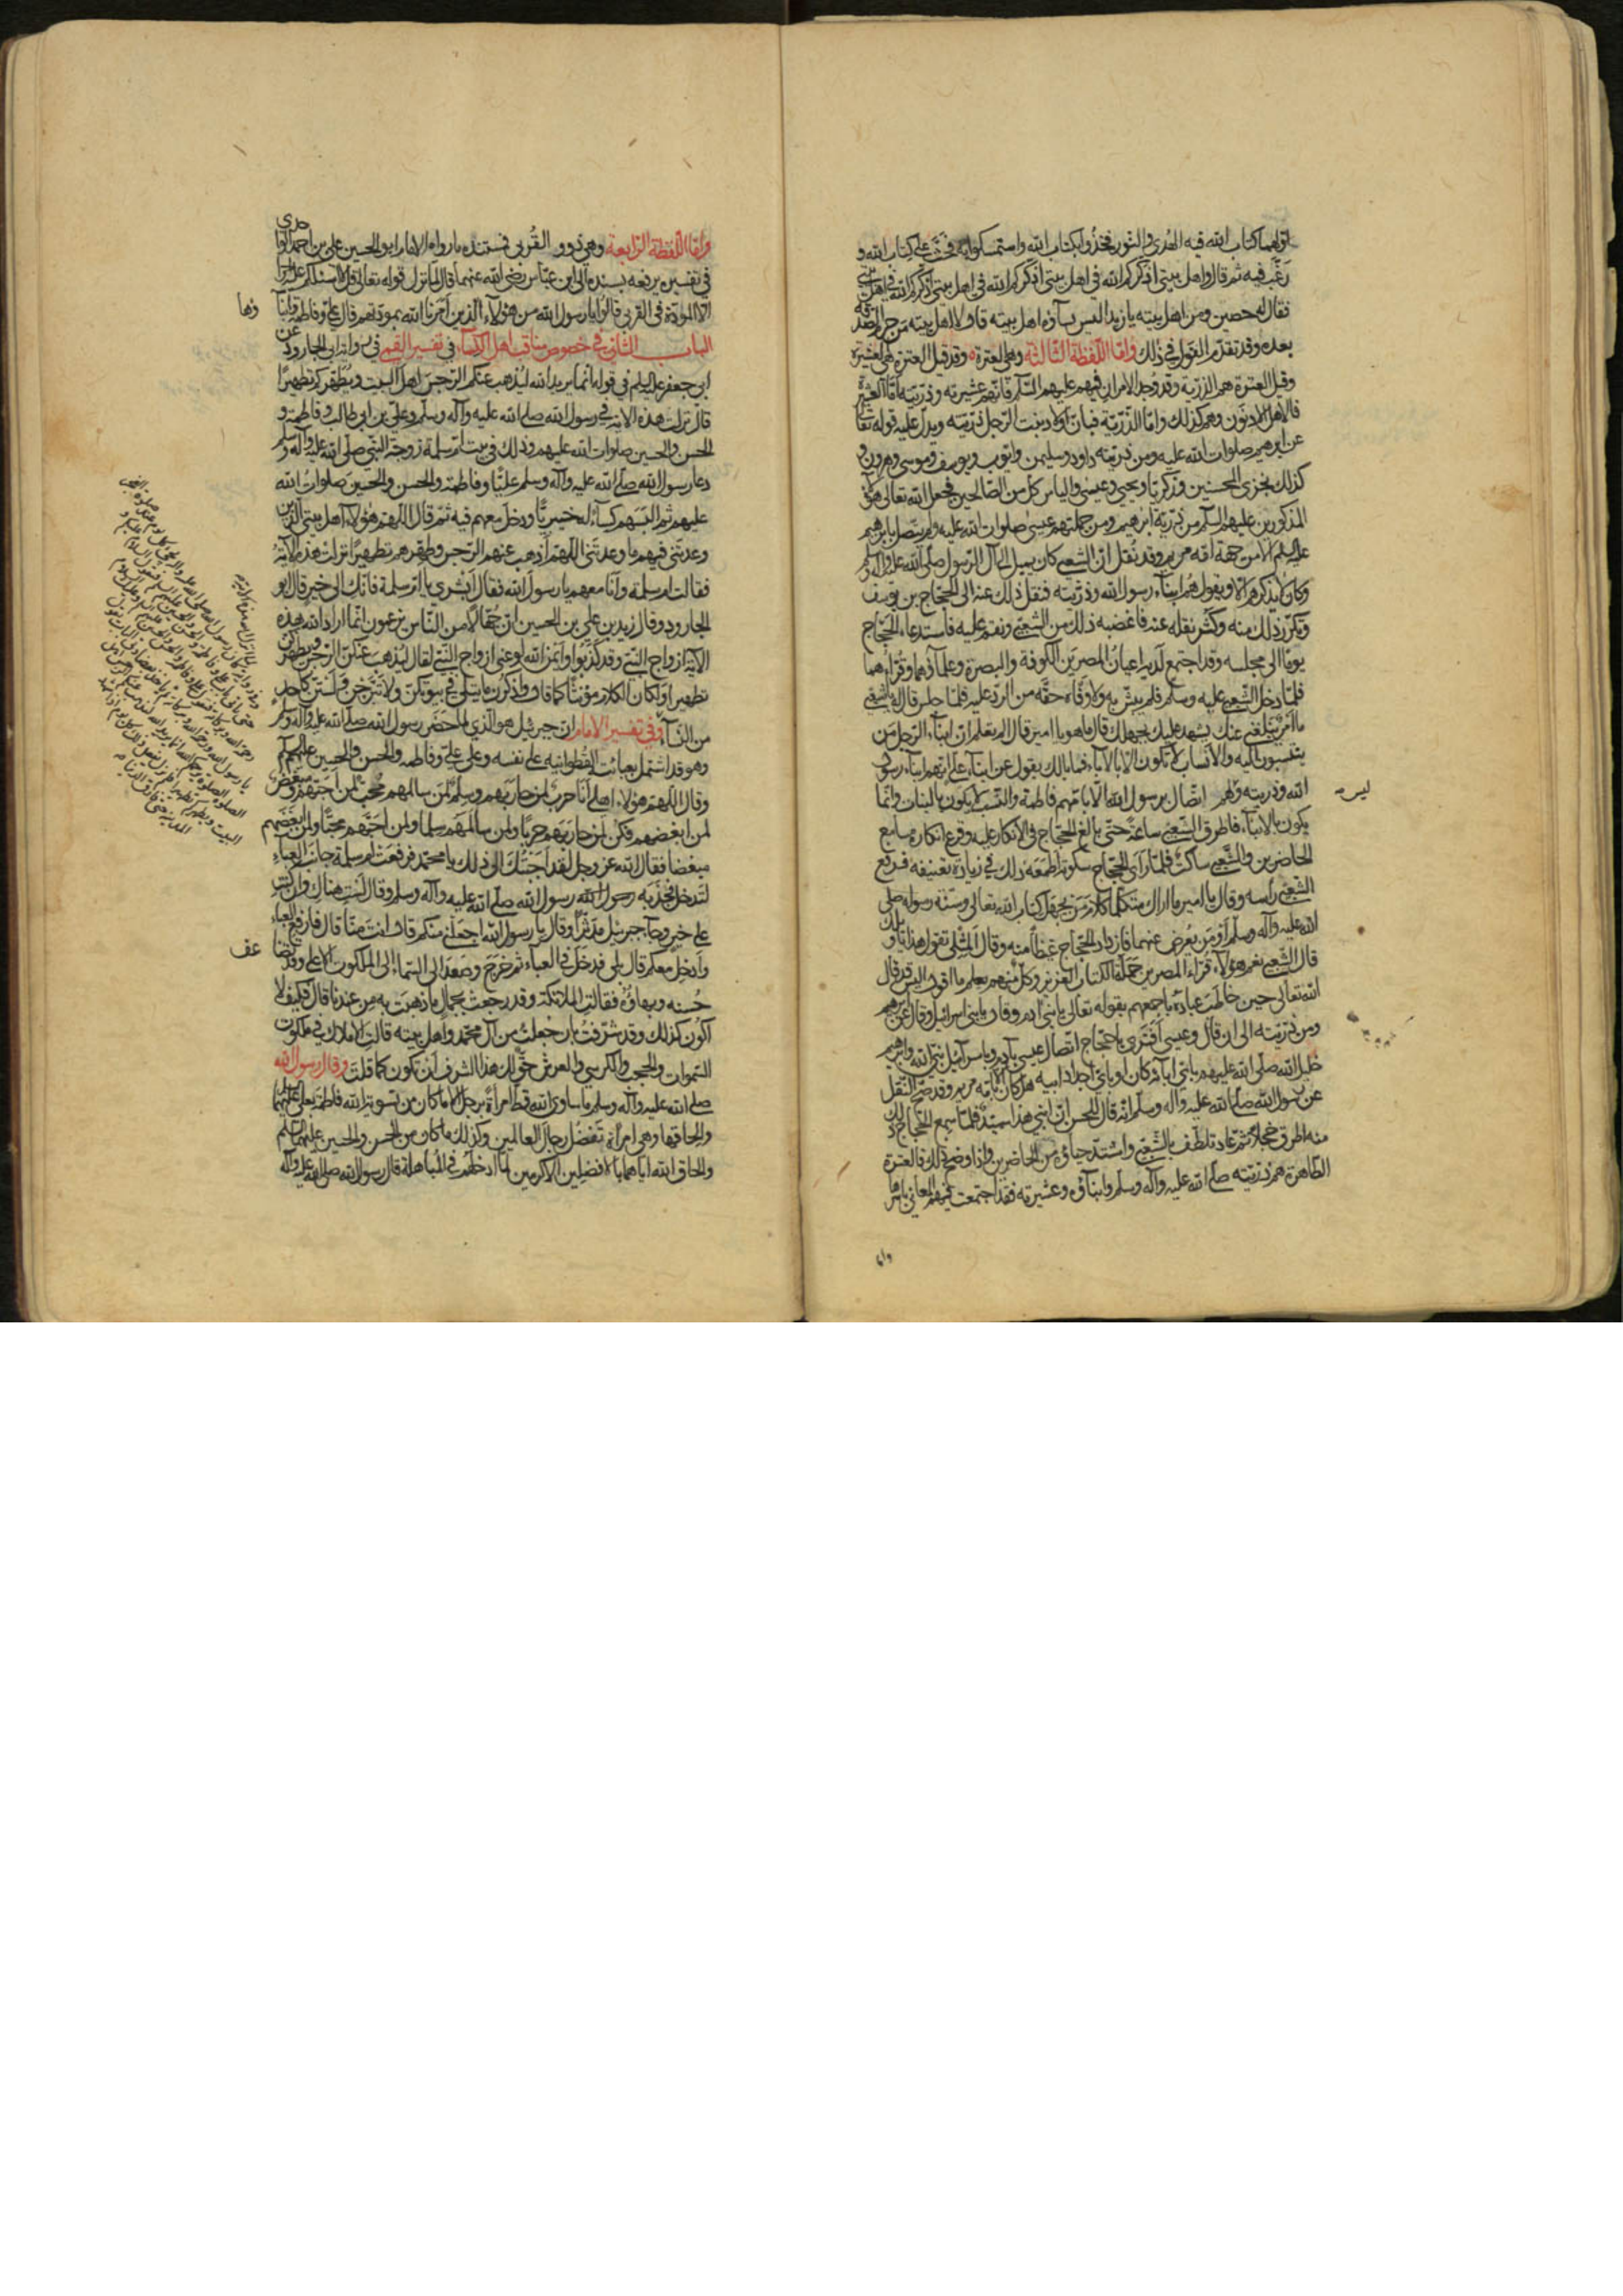 اولهما كتاب الله فيه الهدى والنور فخذوا بكتاب الله واستمسكوا به فحث على كتاب الله و
رغب فيه ثم قال واهل بيتي اذكركم الله في اهل بيتي اذكركم الله في اهل بيتي اذكركم الله في اهل بيتي
فقال له حصين ومن اهل بيته يا زيد اليس نساؤه اهل بيته قال لا اهل بيته من حرم الصدقة
بعده وقد تقدم القول في ذلك واما اللفظة الثالثة وهي العترة وقد قيل العترة هي العشيرة
وقيل العترة هم الذرية وقد وجد الامران فيهم عليهم السلم فانهم عشيرته وذريته اما العشيرة
فالاهل الادنون وهم كذلك واما الذرية فبان اولاد بنت الرجل ذريته ويدل عليه قوله تعالى
عن ابرهيم صلوات الله عليه ومن ذريته داود وسليمن وايوب ويوسف وموسى وهرون و
كذلك نجزى المحسنين وزكريا ويحيى وعيسى والياس كل من الصالحين فجعل الله تعالى هؤلاء
المذكورين عليهم السلم من ذرية ابرهيم ومن جملتهم عيسى صلوات الله عليه ولم يتصل بابرهيم
عليه السلم الا من جهة امه مريم وقد نقل ان الشعبي كان يميل الى آل الرسول صلى الله عليه وآله وسلم
وكان لا يذكرهم الا ويقول هم ابناء رسول الله وذريته فنقل ذلك عنه الى الحجاج بن يوسف
وتكرر ذلك منه وكثر نقله عنه فاغضبه ذلك من الشعبي ونقم عليه فاستدعاه الحجاج
يوما الى مجلسه وقد اجتمع لديه اعيان المصرين الكوفة والبصرة وعلماؤهما وقراءهما
فلما دخل الشعبي عليه وسلم فلم يبش به ولا وفاه حقه من الرد عليه فلما جلس قال له يا شعبي
ما امر يبلغني عنك يشهد عليك بجهلك قال ما هو يا امير قال الم تعلم ان ابناء الرجل من
ينسبون اليه والانساب لا تكون الا بالآباء فما بالك يقول عن ابناء علي انهم ابناء رسول
الله وذريته وهل لهم اتصال برسول الله الا بامهم فاطمة والنسب لا يكون بالبنات وانما
يكون بالابناء فاطرق الشعبي ساعة حتى بالغ الحجاج في الانكار عليه وقرع انكاره مسامع
الحاضرين والشعبي ساكت فلما رأى الحجاج سكوته اطمعه ذلك في زيادة تعنيفه فرفع
الشعبي راسه وقال يا امير ما اراك متكلما كلام من يجهل كتاب الله تعالى وسنة رسوله صلى
الله عليه وآله وسلم او من يعرض عنهما فازداد الحجاج غيظا منه وقال المثلي تقول هذا يا ويلك
قال الشعبي نعم هؤلاء قراء المصرين حملة الكتاب العزيز وكل منهم يعلم ما اقول اليس قد قال
الله تعالى حين خاطب عباده باجمعهم بقوله تعالى يا بني ادم وقال يا بني اسرائيل وقال عن ابرهيم
ومن ذريته الى ان قال وعيسى افترى يا حجاج اتصال عيسى بآدم وباسرآئيل نبي الله وابرهيم
خليل الله صلى الله عليهم باي آبائه كان او باي اجداد ابيه هل كان الا بامه مريم وقد صح النقل
عن رسول الله صلى الله عليه وآله وسلم انه قال للحسن ان ابني هذا سيد فلما سمع الحجاج ذلك
منه اطرق خجلا ثم عاد تلطف بالشعبي واشتد حياؤه من الحاضرين واذا وضح ذلك فالعترة
الطاهرة هم ذريته صلى الله عليه وآله وسلم وابناؤه وعشيرته فقد اجتمعت فيهم المعاني باسرها
واما
واما اللفظة الرابعة وهي ذوو القربى فمستنده ما رواه الامام ابو الحسين علي بن احمد الواحدى
في تفسيره يرفعه بسنده الى ابن عباس رضي الله عنهما قال لما نزل قوله تعالى قل لا اسئلكم عليه اجرا
الا المودة في القربى قالوا يا رسول الله من هؤلاء الذين امرنا الله بمودتهم قال علي وفاطمة وابنا
وهما
الباب الثاني في خصوص مناقب اهل الكساء في تفسير القمي في رواية ابي الجارود عن
ابي جعفر عليه السلم في قوله انما يريد الله ليذهب عنكم الرجس اهل البيت ويطهركم تطهيرا
قال نزلت هذه الاية في رسول الله صلى الله عليه وآله وسلم وعلي بن ابي طالب وفاطمة و
الحسن والحسين صلوات الله عليهم وذلك في بيت ام سلمة زوجة النبي صلى الله عليه وآله وسلم
دعا رسول الله صلى الله عليه وآله وسلم عليا وفاطمة والحسن والحسين صلوات الله
عليهم ثم البسهم كساء له خيبريا ودخل معهم فيه ثم قال اللهم هؤلاء اهل بيتي الذين
وعدتني فيهم ما وعدتني اللهم اذهب عنهم الرجس وطهرهم تطهيرا نزلت هذه الآية
فقالت ام سلمة وانا معهم يا رسول الله فقال ابشري يا ام سلمة فانك الى خير قال ابو
الجارود وقال زيد بن علي بن الحسين ان جهالا من الناس يزعمون انما اراد الله بهذه
الآية ازواج النبي وقد كذبوا واثموا وايم الله لو عنى ازواج النبي لقال ليذهب عنكن الرجس ويطهركن
تطهيرا ولكان الكلام مؤنثا كما قال واذكرن ما يتلى في بيوتكن ولا تبرجن ولستن كاحد
من النساء وفي تفسير الامام ان جبرئيل هو الذي لما حضر رسول الله صلى الله عليه وآله وسلم
وهو قد اشتمل بعبائته القطوانية على نفسه وعلى علي وفاطمة والحسن والحسين عليهم السلم
وقال اللهم هؤلاء اهلي انا حرب لمن حاربهم وسلم لمن سالمهم محب لمن احبهم ومبغض
لمن ابغضهم فكن لمن حاربهم حربا ولمن سالمهم سلما ولمن احبهم محبا ولمن ابغضهم
مبغضا فقال الله عز وجل لقد اجبتك الى ذلك يا محمد فرفعت ام سلمة جانب العباء
لتدخل فجذبه رسول الله صلى الله عليه وآله وسلم وقال لست هناك وان كنت
على خير وجاء جبرئيل مدثرا وقال يا رسول الله اجعلني منكم قال انت منا قال فارفع العباء
وادخل معكم قال بلى فدخل في العباء ثم خرج وصعد الى السماء الى الملكوت الاعلى وقد تضا
عف
حسنه وبهاؤه فقالت الملائكة وقد رجعت بجمال ما ذهبت به من عندنا قال فكيف لا
اكون كذلك وقد شرفت بان جعلت من آل محمد واهل بيته قالت الاملاك في ملكوت
السموات والحجب والكرسي والعرش حق لك هذا الشرف ان تكون كما قلت وقال رسول الله
صلى الله عليه وآله وسلم ما ساوى الله قط امرأة برجل الا ما كان من تسوية الله فاطمة بعلي عليهما السلم
والحاقها وهي امرأة تفضل رجال العالمين وكذلك ما كان من الحسن والحسين عليهما السلم
والحاق الله اياهما بالافضلين الاكرمين لما ادخلهم في المباهلة قال رسول الله صلى الله عليه وآله